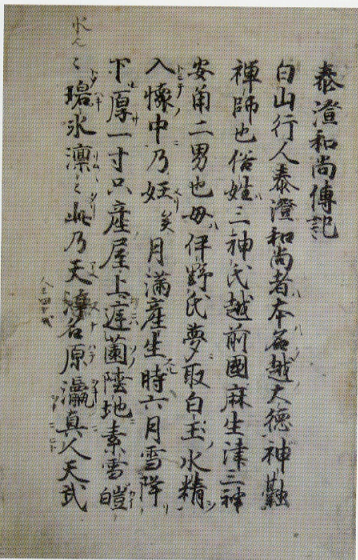 泰澄和尚傳記
白山行人泰澄和尚者本名越大德神融
禪師也俗姓三神氏越前國麻生津三神
安角二男也母伊野氏夢取白玉水精
入懷中乃妊矣月滿產生時六月雪降
下厚一寸只產屋上庭薗陸地素雪皚
々碧氷凛々此乃天渟名原瀛真人天武